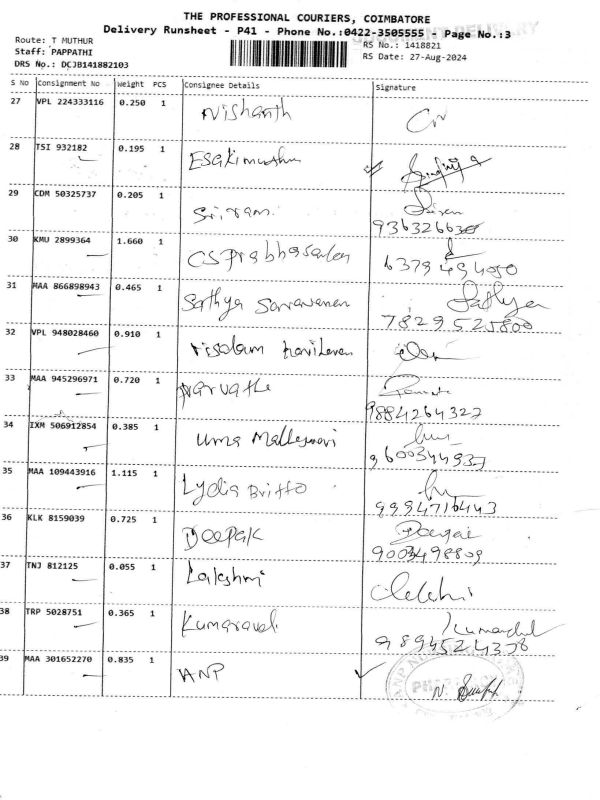 THE PROFESSIONAL COURIERS, COIMBATORE
Delivery Runsheet - P41 - Phone No.:0422-3505555 - Page No.:3
Route: T MUTHUR
RS No.: 1418821
Staff: PAPPATHI
RS Date: 27-Aug-2024
DRS No.: DCJB141882103
S No Consignment No Weight PCS Consignee Details Signature
27 VPL 224333116 0.250 1 Nishanth
28 TSI 932182 0.195 1 Esakimuthu
29 CDM 50325737 0.205 1 Sriram
30 KMU 2899364 1.660 1 CS Prabhasaran
6379494050
31 MAA 866898943 0.465 1 Sathya Saravanan Sathya
7829525800
32 VPL 948028460 0.910 1
33 MAA 945296971 0.720 1 parvathi
9884264327
34 IXM 506912854 0.385 1 Uma Malleswari
9600344937
35 MAA 109443916 1.115 1 Lydia Britto
9994716443
36 KLK 8159039 0.725 1 Deepak
9003498809
37 TNJ 812125 0.055 1 Lakshmi
38 TRP 5028751 0.365 1 Kumaravel
9894524378
39 MAA 301652270 0.835 1 ANP